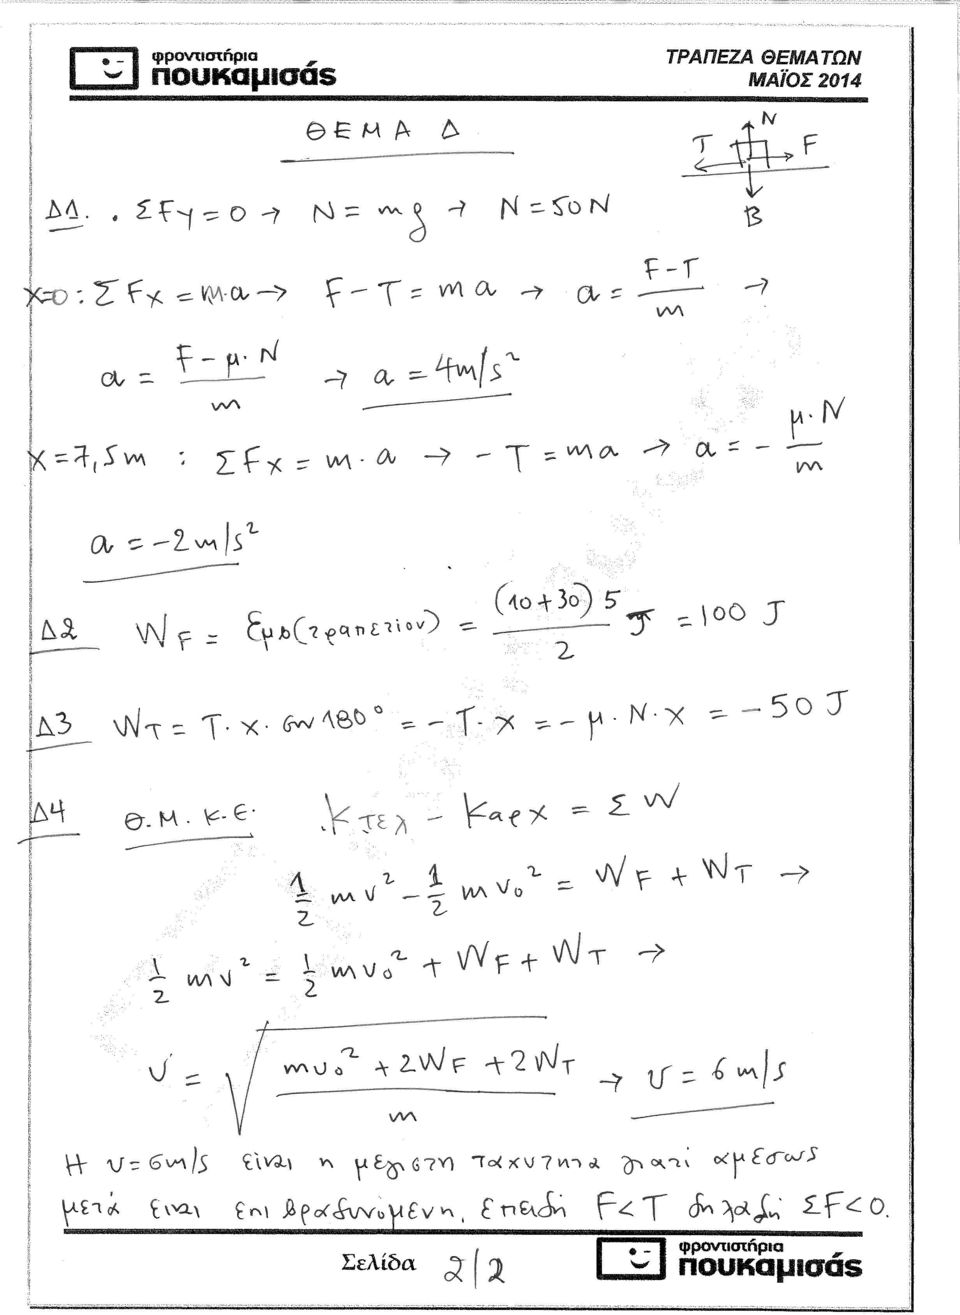 φροντιστήρια
πουκαμισάς
ΤΡΑΠΕΖΑ ΘΕΜΑΤΩΝ
ΜΑΪΟΣ 2014
ΘΕΜΑ Δ
N
T
F
B
Δ1. . ΣFy = 0 → N = mg → N = 50N
x=0 : ΣFx = m·a → F - T = ma → a = F-T/m →
a = F - μ·N/m → a = 4m/s²
x = 7,5m : ΣFx = m·a → - T = ma → a = - μ·N/m
a = -2m/s²
Δ2 WF = Εμβ(τραπεζίου) = (10+30) 5/2 J = 100 J
Δ3 WT = T·x·συν180° = - T·x = - μ·N·x = - 50 J
Δ4 Θ.Μ.Κ.Ε. Kτελ - Kαρχ = ΣW
1/2 mv² - 1/2 mv₀² = WF + WT →
1/2 mv² = 1/2 mv₀² + WF + WT →
υ = √(mυ₀² + 2WF + 2WT/m) → υ = 6 m/s
Η υ=6m/s είναι η μέγιστη ταχύτητα γιατί αμέσως
μετά είναι επιβραδυνόμενη, επειδή F<T δηλαδή ΣF<0.
Σελίδα 2/2
φροντιστήρια
πουκαμισάς